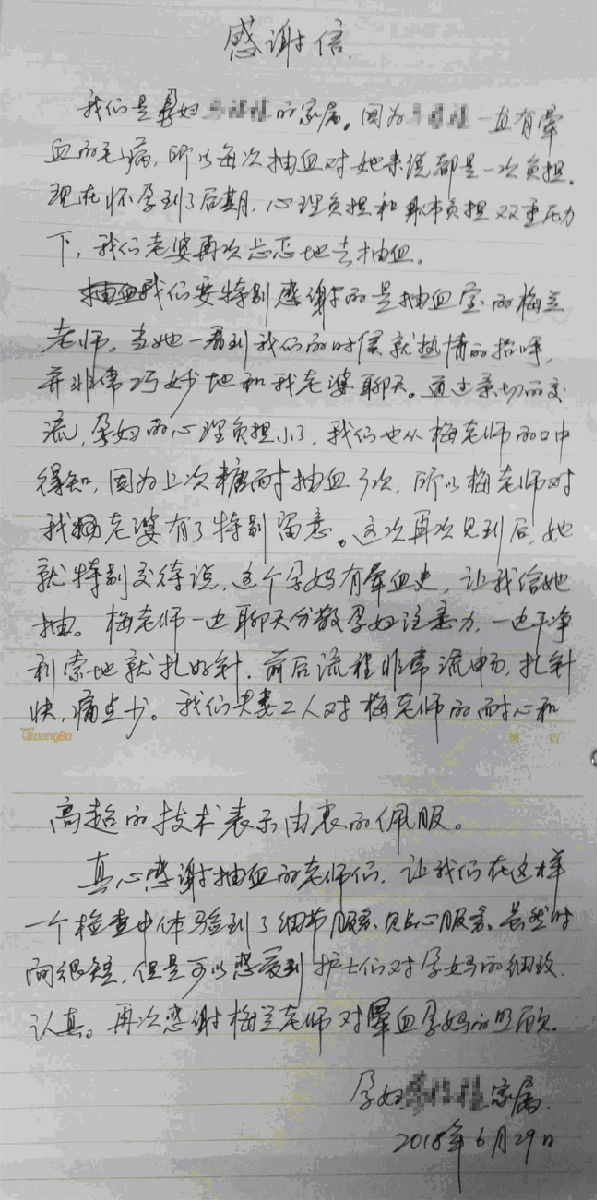 感谢信
我们是孕妇 的家属。因为 一直有晕
血的毛病,所以每次抽血对她来说都是一次负担。
现在怀孕到了后期,心理负担和身体负担双重压力
下,我们老婆再次忐忑地去抽血。
我们要特别感谢的是抽血室的梅兰
老师。当她一看到我们的时候就热情的招呼,
并非常巧妙地和我老婆聊天。通过亲切的交
流,孕妇的心理负担小了,我们也从梅老师的口中
得知,因为上次糖耐抽血3次,所以梅老师对
我老婆有了特别留意。这次再次见到后,她
就特别交待说,这个孕妈有晕血史,让我给她
抽。梅老师一边聊天分散孕妇注意力,一边干净
利索地就扎好针,前后流程非常流畅,扎针
快,痛点少。我们夫妻二人对梅老师的耐心和
GuangBo
高超的技术表示由衷的佩服。
真心感谢抽血的老师们,让我们在这样
一个检查中体验到了细节服务、贴心服务。虽然时
间很短,但是可以感受到护士们对孕妈的细致、
认真。再次感谢梅兰老师对晕血孕妈的照顾。
孕妇 家属
2018年6月29日